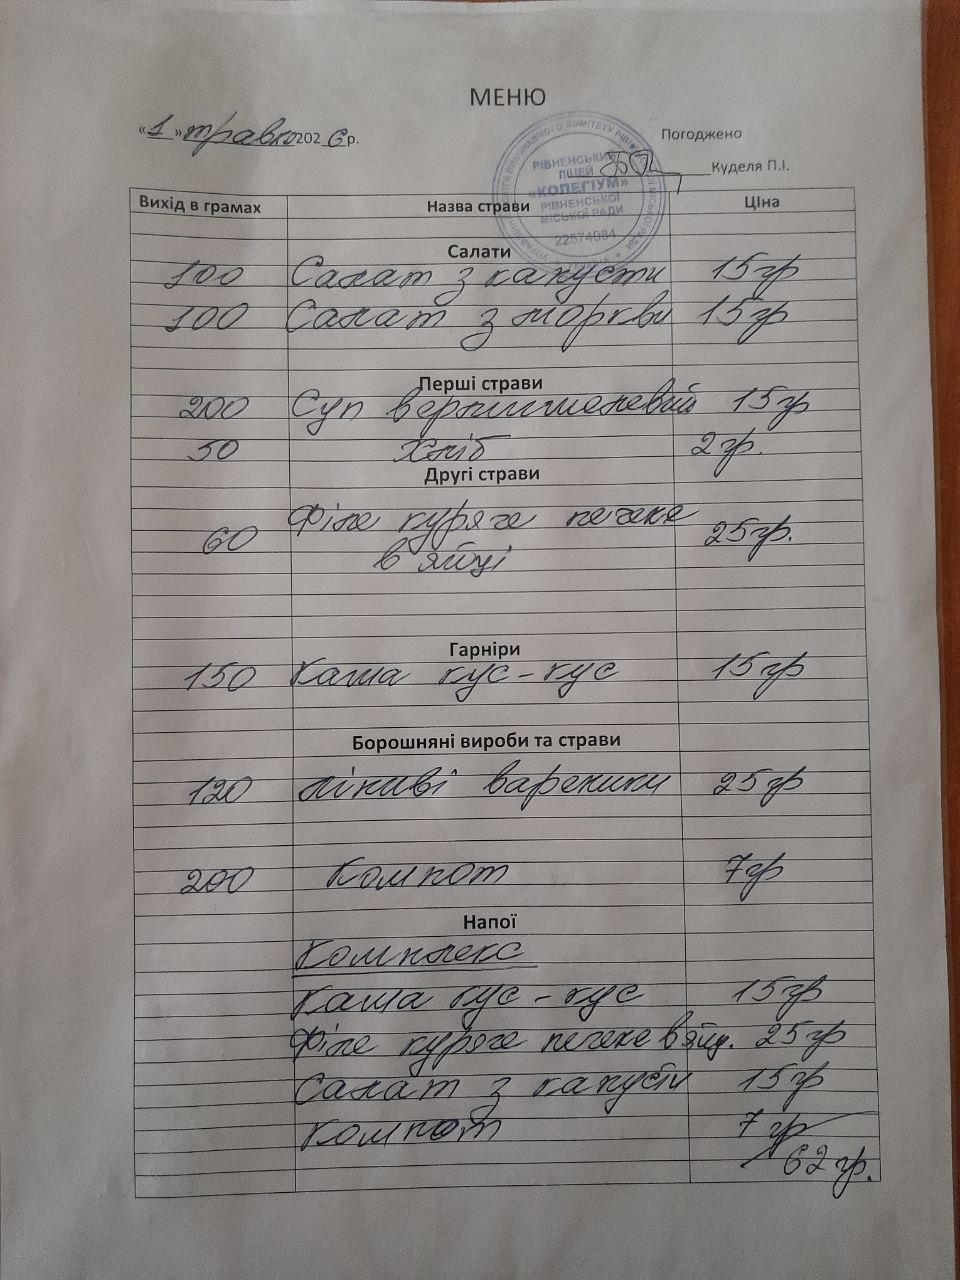 МЕНЮ
«1» травня 2026 р.
Погоджено
Куделя П.І.
РІВНЕНСЬКИЙ
ЛІЦЕЙ
«КОЛЕГІУМ»
РІВНЕНСЬКОЇ
МІСЬКОЇ РАДИ
22674084
Вихід в грамах Назва страви Ціна
Салати
100 Салат з капусти 15гр
100 Салат з моркви 15гр
Перші страви
200 Суп вермишелевий 15гр
50 Хліб 2гр.
Другі страви
60 Філе куряче печене 25гр.
в яйці
Гарніри
150 Каша кус-кус 15гр
Борошняні вироби та страви
120 лініві вареники 25гр
200 Компот 7гр
Напої
Комплекс
Каша кус-кус 15гр
Філе куряче печене в яйц. 25гр
Салат з капусти 15гр
Компот 7гр
62гр.